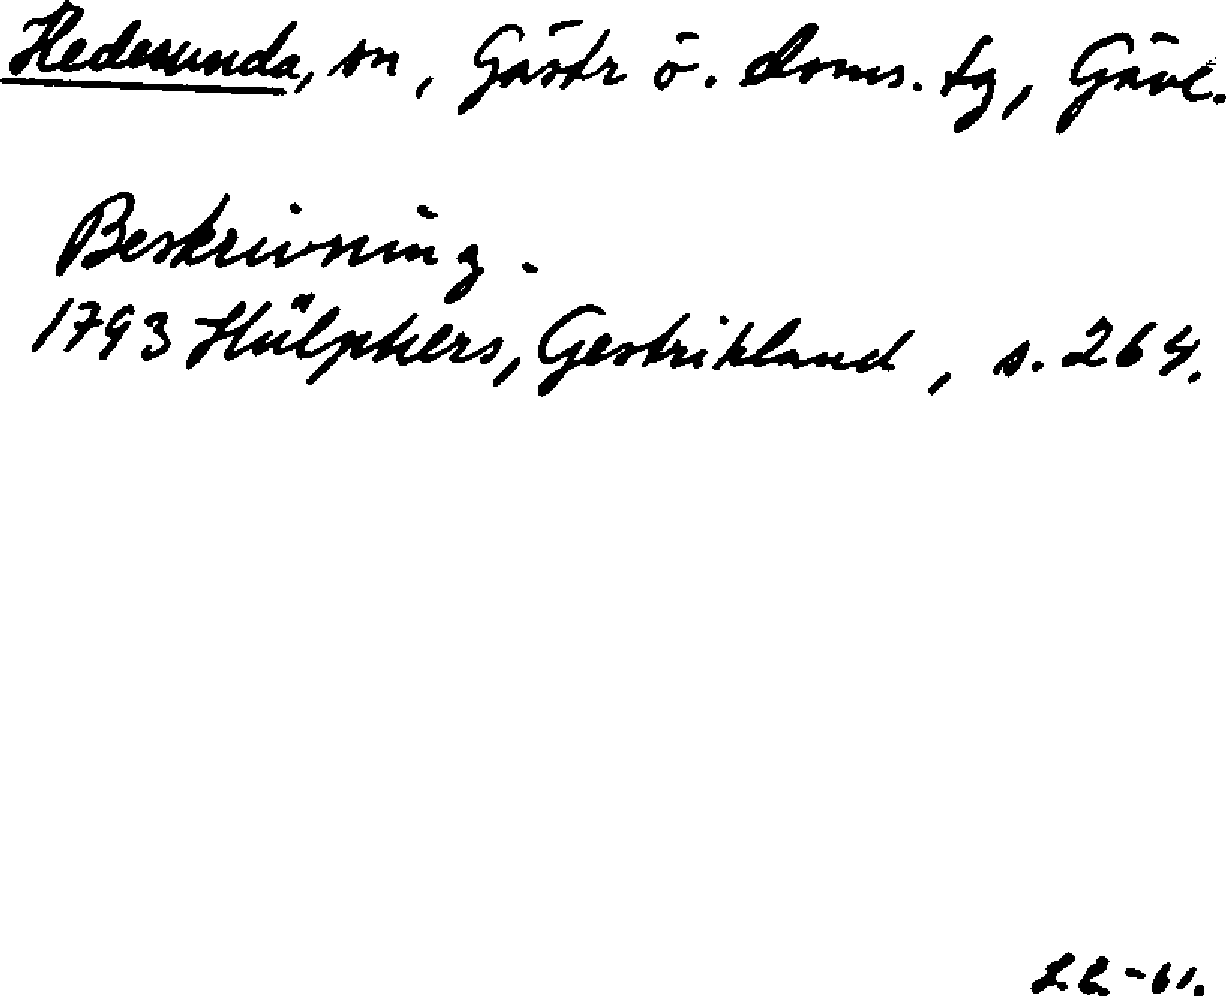 Hedesunda, sn, Gästr ö. doms. tg, Gävl.
Beskrivning.
1793 Hülphers, Gestrikland, s. 264.
-61.